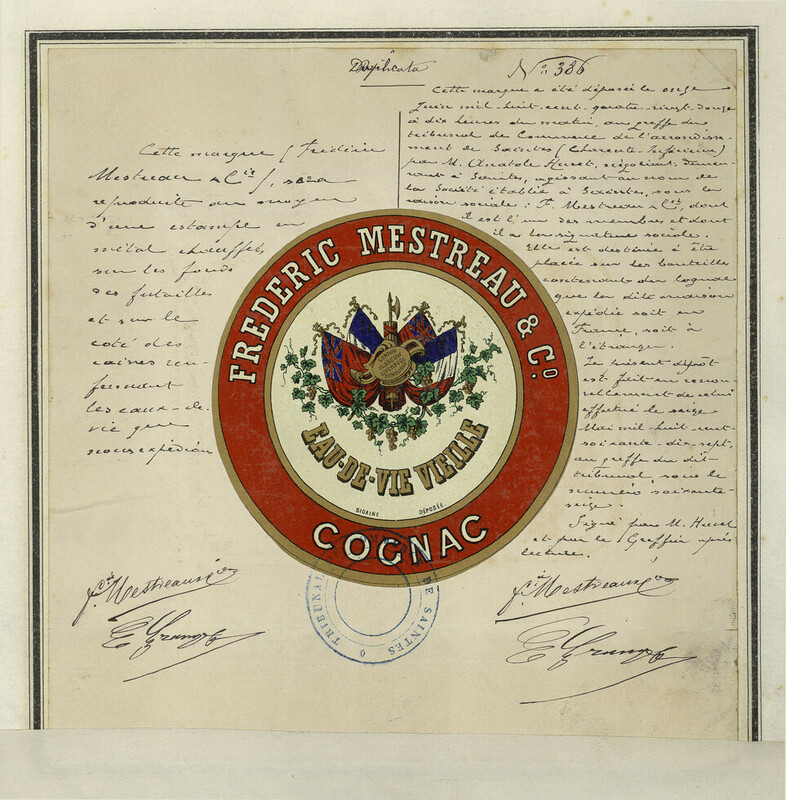 Duplicata
N° 386
Cette marque a été déposée le onze
Juin mil-huit-cent-quatre-vingt-douze
à dix heures du matin, au greffe du
tribunal de Commerce de l'arrondisse-
ment de Saintes (Charente-Inférieure)
par M. Anatole Huet, négociant, demeu-
rant à Saintes, agissant au nom de
la Société établie à Saintes, sous la
raison sociale : F. Mestreau & Cie, dont
il est l'un des membres et dont
il a la signature sociale.
Elle est destinée à être
placée sur les bouteilles
contenant du Cognac
que la dite maison
expédie soit en
France, soit à
l'étranger.
Le présent dépôt
est fait en renou-
vellement de celui
effectué le seize
Mai mil-huit-cent-
soixante-dix-sept,
au greffe du dit
tribunal, sous le
numéro soixante-
seize.
Signé par M. Huet
et par le Greffier après
lecture.
Cette marque (Frédéric
Mestreau & Cie), sera
reproduite au moyen
d'une estampe en
métal chauffée
sur les fonds
des futailles
et sur le
coté des
caisses ren-
fermant
les eaux-de-
vie que
nous expédions
FREDERIC MESTREAU & Co.
EAU-DE-VIE VIEILLE
DÉPOSÉE.
COGNAC
TRIBUNAL DE SAINTES
F. Mestreau & Cie
F. Mestreau & Cie